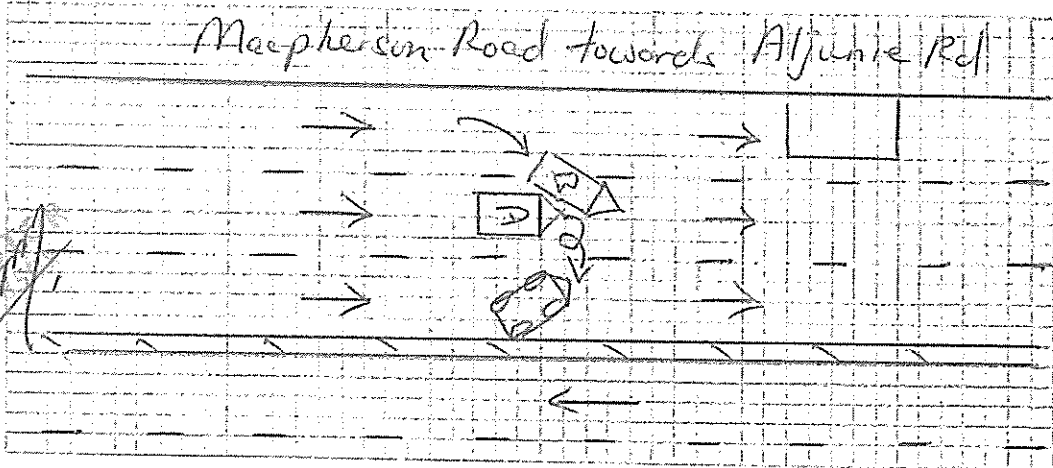 Macpherson Road towards Aljunie Rd
B
A